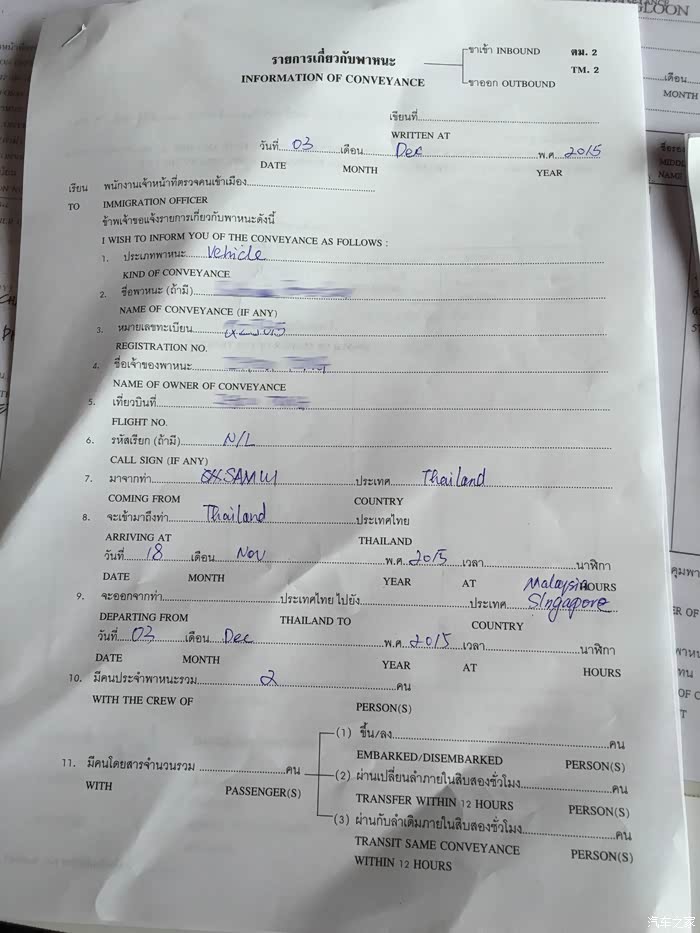 LOON
รายการเกี่ยวกับพาหนะ
INFORMATION OF CONVEYANCE
ขาเข้า INBOUND
ขาออก OUTBOUND
ตม. 2
TM. 2
เดือน
MONTH
เขียนที่
WRITTEN AT
วันที่ 03 เดือน Dec พ.ศ. 2015
DATE MONTH YEAR
เรียน พนักงานเจ้าหน้าที่ตรวจคนเข้าเมือง
TO IMMIGRATION OFFICER
ข้าพเจ้าขอแจ้งรายการเกี่ยวกับพาหนะดังนี้
I WISH TO INFORM YOU OF THE CONVEYANCE AS FOLLOWS :
1. ประเภทพาหนะ Vehicle
KIND OF CONVEYANCE
2. ชื่อพาหนะ (ถ้ามี)
NAME OF CONVEYANCE (IF ANY)
3. หมายเลขทะเบียน
REGISTRATION NO.
4. ชื่อเจ้าของพาหนะ
NAME OF OWNER OF CONVEYANCE
5. เที่ยวบินที่
FLIGHT NO.
6. รหัสเรียก (ถ้ามี) N/L
CALL SIGN (IF ANY)
7. มาจากท่า SAMUI ประเทศ Thailand
COMING FROM COUNTRY
8. จะเข้ามาถึงท่า Thailand ประเทศไทย
ARRIVING AT THAILAND
วันที่ 18 เดือน Nov พ.ศ. 2015 เวลา นาฬิกา
DATE MONTH YEAR AT HOURS
Malaysia
9. จะออกจากท่า ประเทศไทย ไปยัง ประเทศ Singapore
DEPARTING FROM THAILAND TO COUNTRY
วันที่ 03 เดือน Dec พ.ศ. 2015 เวลา นาฬิกา
DATE MONTH YEAR AT HOURS
10. มีคนประจำพาหนะรวม 2 คน
WITH THE CREW OF PERSON(S)
11. มีคนโดยสารจำนวนรวม คน
WITH PASSENGER(S)
(1) ขึ้น/ลง คน
EMBARKED/DISEMBARKED PERSON(S)
(2) ผ่านเปลี่ยนลำภายในสิบสองชั่วโมง คน
TRANSFER WITHIN 12 HOURS PERSON(S)
(3) ผ่านกับลำเดิมภายในสิบสองชั่วโมง คน
TRANSIT SAME CONVEYANCE PERSON(S)
WITHIN 12 HOURS
汽车之家